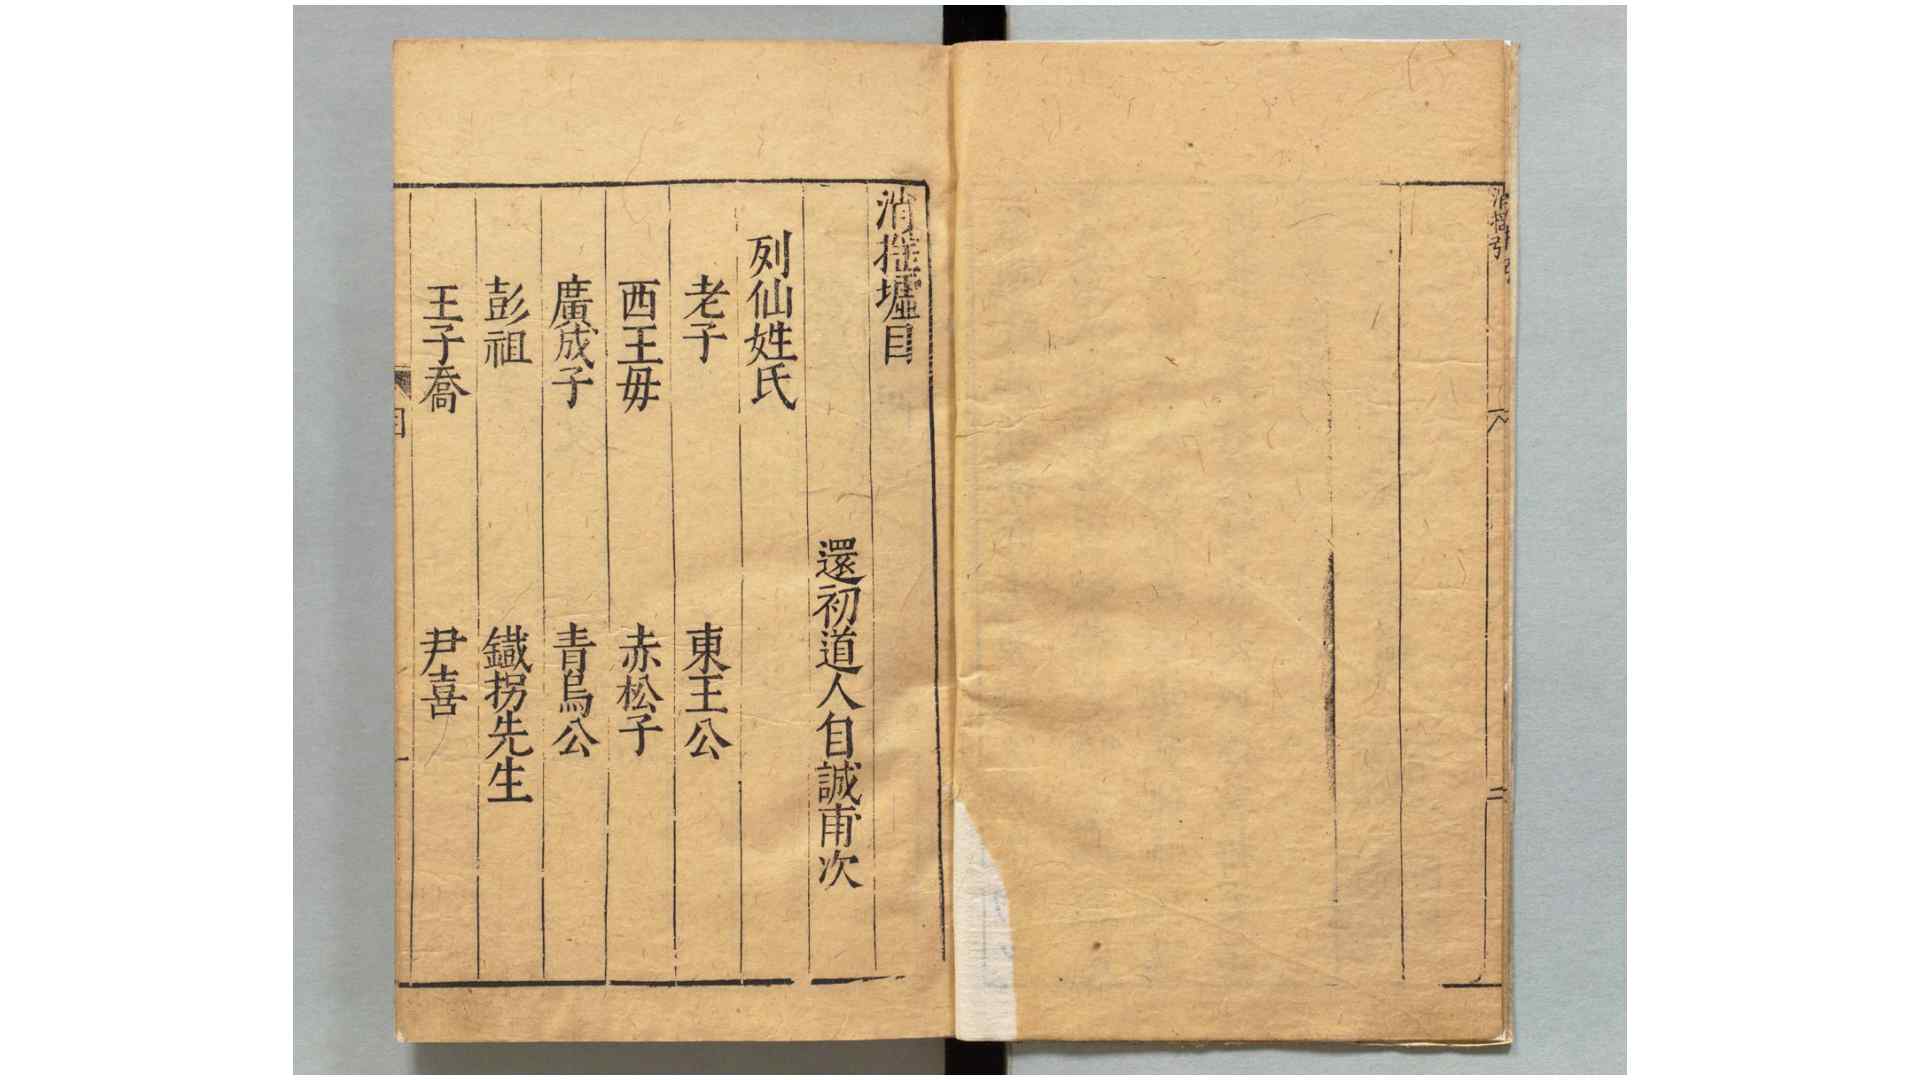 消搖引
二
消搖墟目
還初道人自誠甫次
列仙姓氏
老子　東王公
西王毋　赤松子
廣成子　青烏公
彭祖　鐵拐先生
王子喬　尹喜
目
一